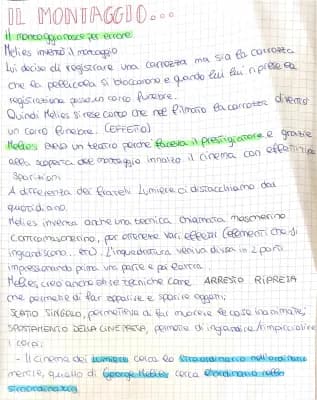 IL MONTAGGIO...
Il montaggio nasce per errore
Melies inventò il montaggio
Lui decise di registrare una carrozza ma sia la carrozza
che la pellicola si bloccarono e quando lui riprese la
registrazione passò un carro funebre.
Quindi Melies si rese conto che nel filmato la carrozza diventò
un carro funebre. (EFFETTO)
Melies aveva un teatro perchè faceva il prestigiatore e grazie
alla scoperta del montaggio innalzò il cinema con effetti tipo
sparizioni
A differenza dei fratelli Lumiere ci distacchiamo dal
quotidiano.
Melies inventa anche una tecnica chiamata mascherino
contromascherino, per ottenere vari effetti (elementi che si
ingrandiscono... etc). L'inquadratura veniva divisa in 2 parti
impressionando prima una parte e poi l'altra.
Melies creò anche altre tecniche come ARRESTO RIPRESA
che permette di far apparire e sparire oggetti,
SCATTO SINGOLO, permetteva di far muovere le cose inanimate,
SPOSTAMENTO DELLA CINEPRESA, permette di ingrandire/rimpicciolire
i corpi.
- Il cinema dei Lumiere cerca lo straordinario nell'ordinario
mentre, quello di George Melies cerca l'ordinario nello
straordinario